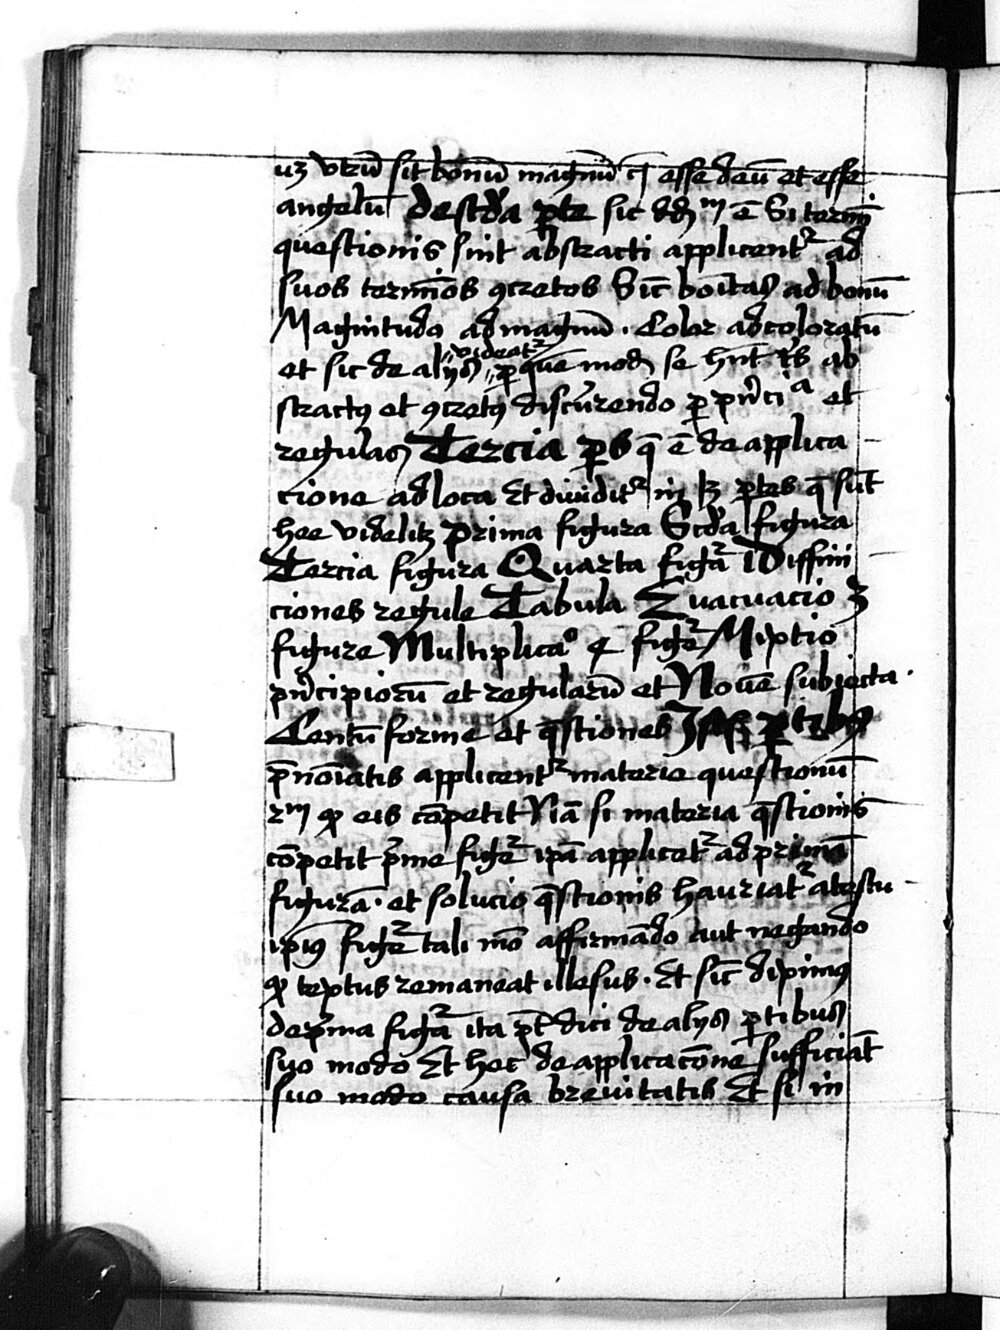 uȝ vtrū sit bonū magnū qͥ esse deū et esse
angelū De scḋa pte sic dḋm ē Si termī
questionis sint abstracti applicentʳ ad
suos termīos ꝯcretos Sic̄ boītas ad bonū
Magnitudo ad magnū . Color ad coloratū
et sic de alijs videatʳ ꝑ quē mod se hn̄t ab
stractꝯ et ꝯcretꝯ discurrendo ꝑ pn̄ciᵃ et
regulas Tercia ꝑs q̄ ē de applica
cione ad loca Et diuiditʳ in ptes q̄ sūt
hee videlitȝ Prima figura Scḋa figura
Tercia figura Quarta figʳa Diffini
ciones regule Tabula Euacuacio 3
figure Multiplicaᵒ 4 figʳe Mixtio
pn̄cipiorū et regularū et Nouē subiecta .
Centū forme et q̄stiones Istis ꝑtibus
p̄noīatis applicentʳ materie questionū
ꝙ eis cōpetit Nā si materia q̄stionis
cōpetit p̄me figʳe ip̄a applicetʳ ad primā
figurā . et solucio q̄stionis hauriatʳ a textu
ip̄iꝯ figʳe tali mō affirmādo aut negando
ꝙ textus remaneat illesus . Et sic̄ diximꝯ
de p̄ma figʳa ita p̄t dici de alijs ꝑtibus
suo modo Et hec de applicacōne sufficiāt
suo modo causa breuitatis Et si in